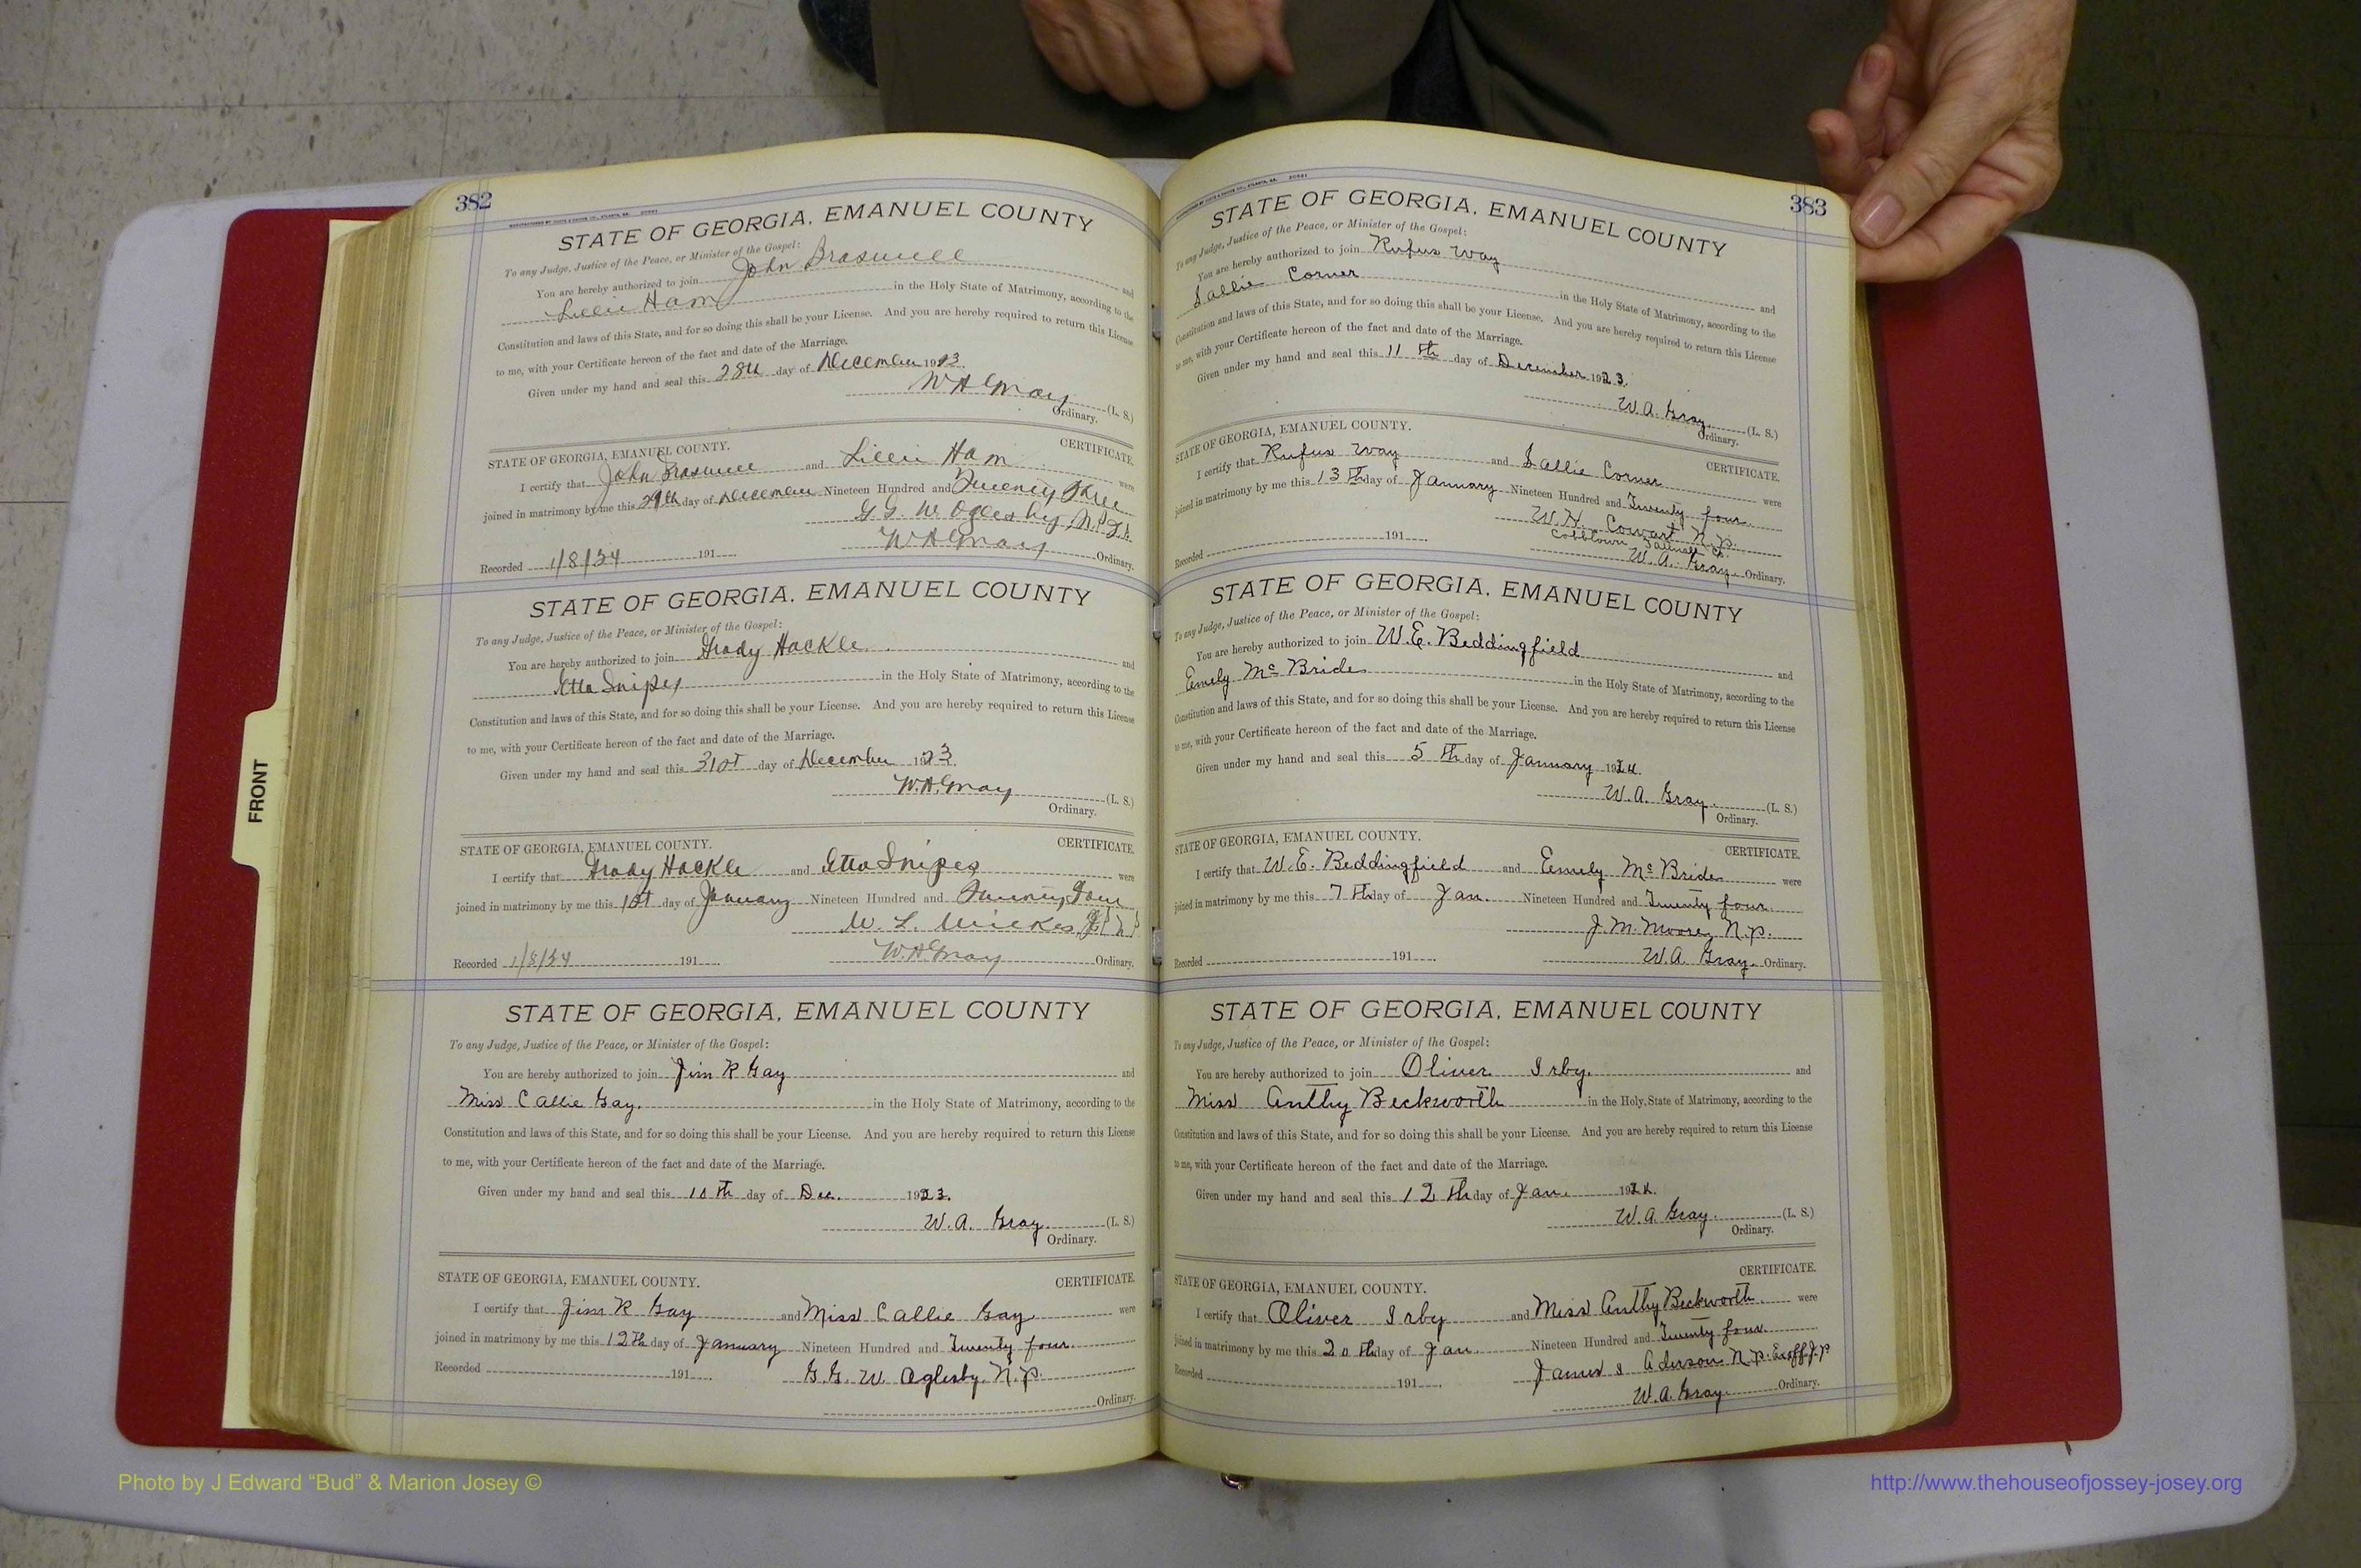 382
STATE OF GEORGIA, EMANUEL COUNTY
To any Judge, Justice of the Peace, or Minister of the Gospel:
You are hereby authorized to join John Braswell and
Lillie Ham in the Holy State of Matrimony, according to the
Constitution and laws of this State, and for so doing this shall be your License. And you are hereby required to return this License
to me, with your Certificate hereon of the fact and date of the Marriage.
Given under my hand and seal this 28th day of December 1923.
(L. S.)
Ordinary.
STATE OF GEORGIA, EMANUEL COUNTY. CERTIFICATE.
I certify that John Braswell and Lillie Ham were
joined in matrimony by me this 29th day of December Nineteen Hundred and Twenty Three
G. G. W. Oglesby N.P.
Recorded 1/8/24 191 Ordinary.
STATE OF GEORGIA, EMANUEL COUNTY
To any Judge, Justice of the Peace, or Minister of the Gospel:
You are hereby authorized to join Grady Hackle and
Etta Snipes in the Holy State of Matrimony, according to the
Constitution and laws of this State, and for so doing this shall be your License. And you are hereby required to return this License
to me, with your Certificate hereon of the fact and date of the Marriage.
Given under my hand and seal this 31st day of December 1923.
(L. S.)
Ordinary.
STATE OF GEORGIA, EMANUEL COUNTY. CERTIFICATE.
I certify that Grady Hackle and Etta Snipes were
joined in matrimony by me this 1st day of January Nineteen Hundred and Twenty Four
W. L.
Recorded 1/8/24 191 Ordinary.
STATE OF GEORGIA, EMANUEL COUNTY
To any Judge, Justice of the Peace, or Minister of the Gospel:
You are hereby authorized to join Jim R Gay and
Miss Callie Gay. in the Holy State of Matrimony, according to the
Constitution and laws of this State, and for so doing this shall be your License. And you are hereby required to return this License
to me, with your Certificate hereon of the fact and date of the Marriage.
Given under my hand and seal this 10th day of Dec. 1923.
W. A. Gray. (L. S.)
Ordinary.
STATE OF GEORGIA, EMANUEL COUNTY. CERTIFICATE.
I certify that Jim R Gay and Miss Callie Gay were
joined in matrimony by me this 12th day of January Nineteen Hundred and Twenty four.
Recorded 191 G. G. W. Oglesby. N. P.
Ordinary.
383
STATE OF GEORGIA, EMANUEL COUNTY
To any Judge, Justice of the Peace, or Minister of the Gospel:
You are hereby authorized to join Rufus Way and
Sallie Corner in the Holy State of Matrimony, according to the
Constitution and laws of this State, and for so doing this shall be your License. And you are hereby required to return this License
to me, with your Certificate hereon of the fact and date of the Marriage.
Given under my hand and seal this 11th day of December 1923.
W. A. Gray (L. S.)
Ordinary.
STATE OF GEORGIA, EMANUEL COUNTY. CERTIFICATE.
I certify that Rufus Way and Sallie Corner were
joined in matrimony by me this 13th day of January Nineteen Hundred and Twenty four
W. H. Cowart N. P.
Cobbtown Tattnall Co.
Recorded 191 W. A. Gray Ordinary.
STATE OF GEORGIA, EMANUEL COUNTY
To any Judge, Justice of the Peace, or Minister of the Gospel:
You are hereby authorized to join W. E. Beddingfield and
Emely McBride in the Holy State of Matrimony, according to the
Constitution and laws of this State, and for so doing this shall be your License. And you are hereby required to return this License
to me, with your Certificate hereon of the fact and date of the Marriage.
Given under my hand and seal this 5th day of January 1924.
W. A. Gray. (L. S.)
Ordinary.
STATE OF GEORGIA, EMANUEL COUNTY. CERTIFICATE.
I certify that W. E. Beddingfield and Emely McBride were
joined in matrimony by me this 7th day of Jan. Nineteen Hundred and Twenty four.
J. M. N. P.
Recorded 191 W. A. Gray. Ordinary.
STATE OF GEORGIA, EMANUEL COUNTY
To any Judge, Justice of the Peace, or Minister of the Gospel:
You are hereby authorized to join Oliver Irby. and
Miss Anthy Beckworth in the Holy State of Matrimony, according to the
Constitution and laws of this State, and for so doing this shall be your License. And you are hereby required to return this License
to me, with your Certificate hereon of the fact and date of the Marriage.
Given under my hand and seal this 12th day of Jan. 1924.
W. A. Gray. (L. S.)
Ordinary.
STATE OF GEORGIA, EMANUEL COUNTY. CERTIFICATE.
I certify that Oliver Irby and Miss Anthy Beckworth were
joined in matrimony by me this 20th day of Jan. Nineteen Hundred and Twenty four.
James N. P. Exoff. J. P
Recorded 191 W. A. Gray. Ordinary.
FRONT
Photo by J Edward “Bud” & Marion Josey ©
http://www.thehouseofjossey-josey.org